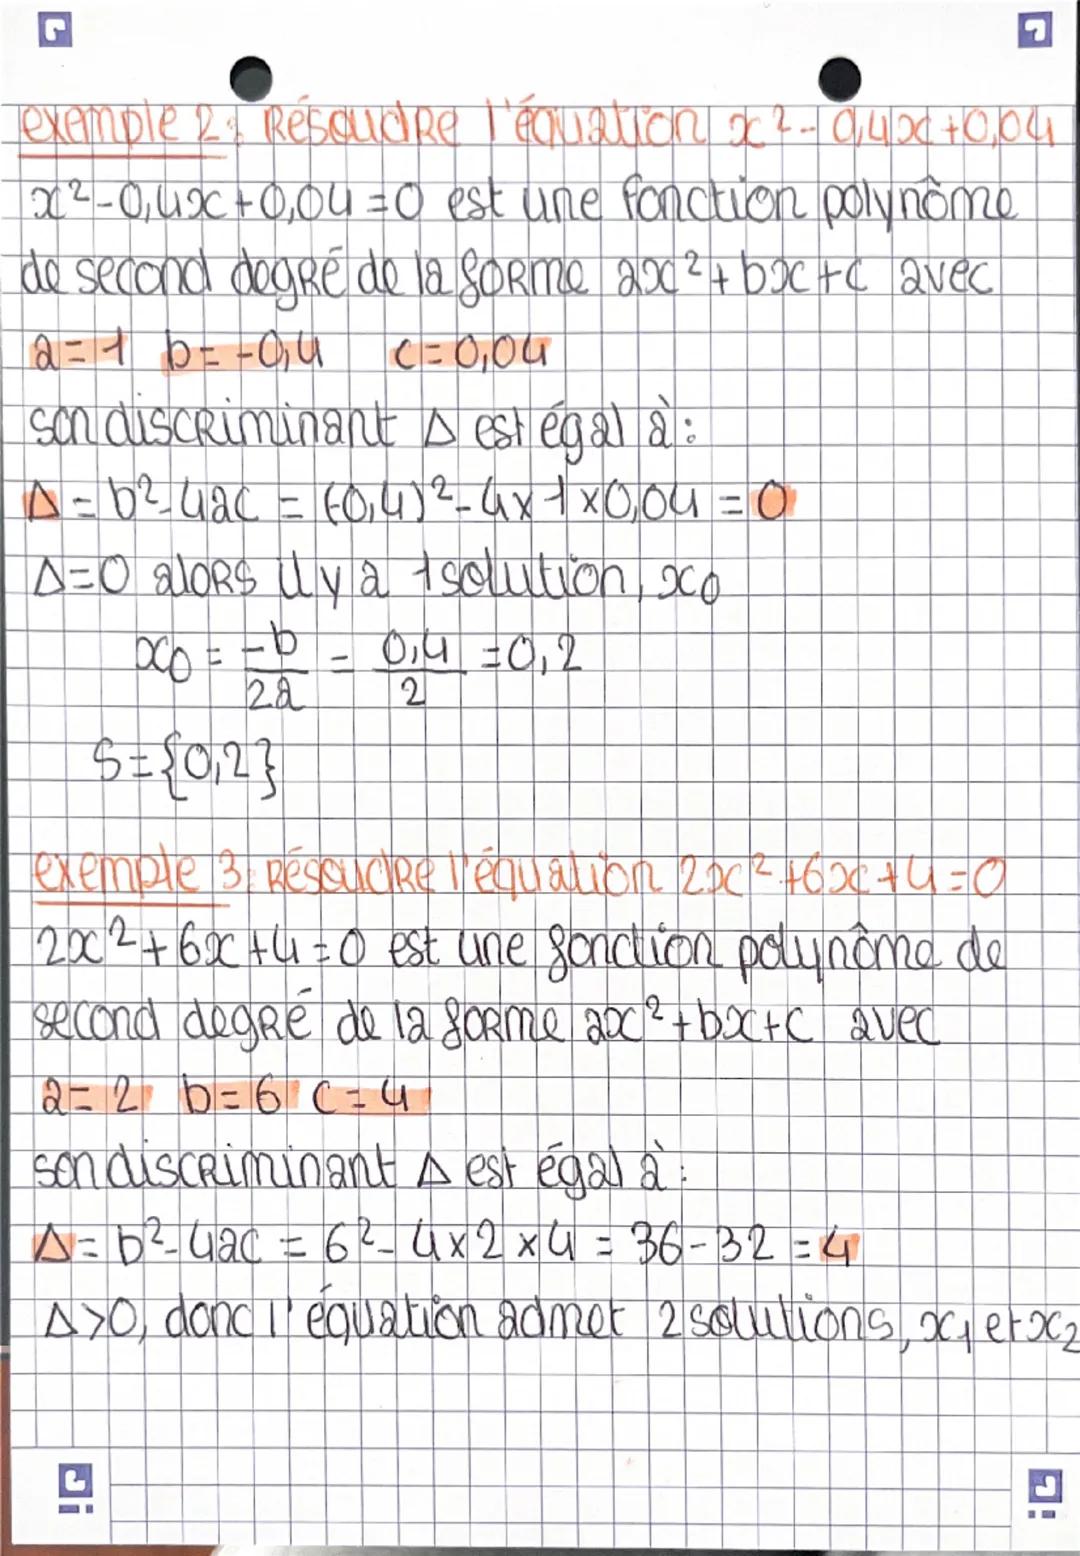 exemple 2: Résoudre l'équation x²-0,4x+0,04
x²-0,4x+0,04=0 est une fonction polynôme
de second degré de la forme ax²+bx+c avec
a=1 b=-0,4 c=0,04
son discriminant Δ est égal à:
Δ=b²-4ac = (-0,4)²-4×1×0,04=0
Δ=0 alors il y a 1 solution, x₀
x₀ = -b/2a = 0,4/2 = 0,2
S={0,2}
exemple 3: Résoudre l'équation 2x²+6x+4=0
2x²+6x+4=0 est une fonction polynôme de
second degré de la forme ax²+bx+c avec
a=2 b=6 c=4
son discriminant Δ est égal à:
Δ=b²-4ac = 6²-4×2×4 = 36-32 = 4
Δ>0, donc l'équation admet 2 solutions, x₁ et x₂